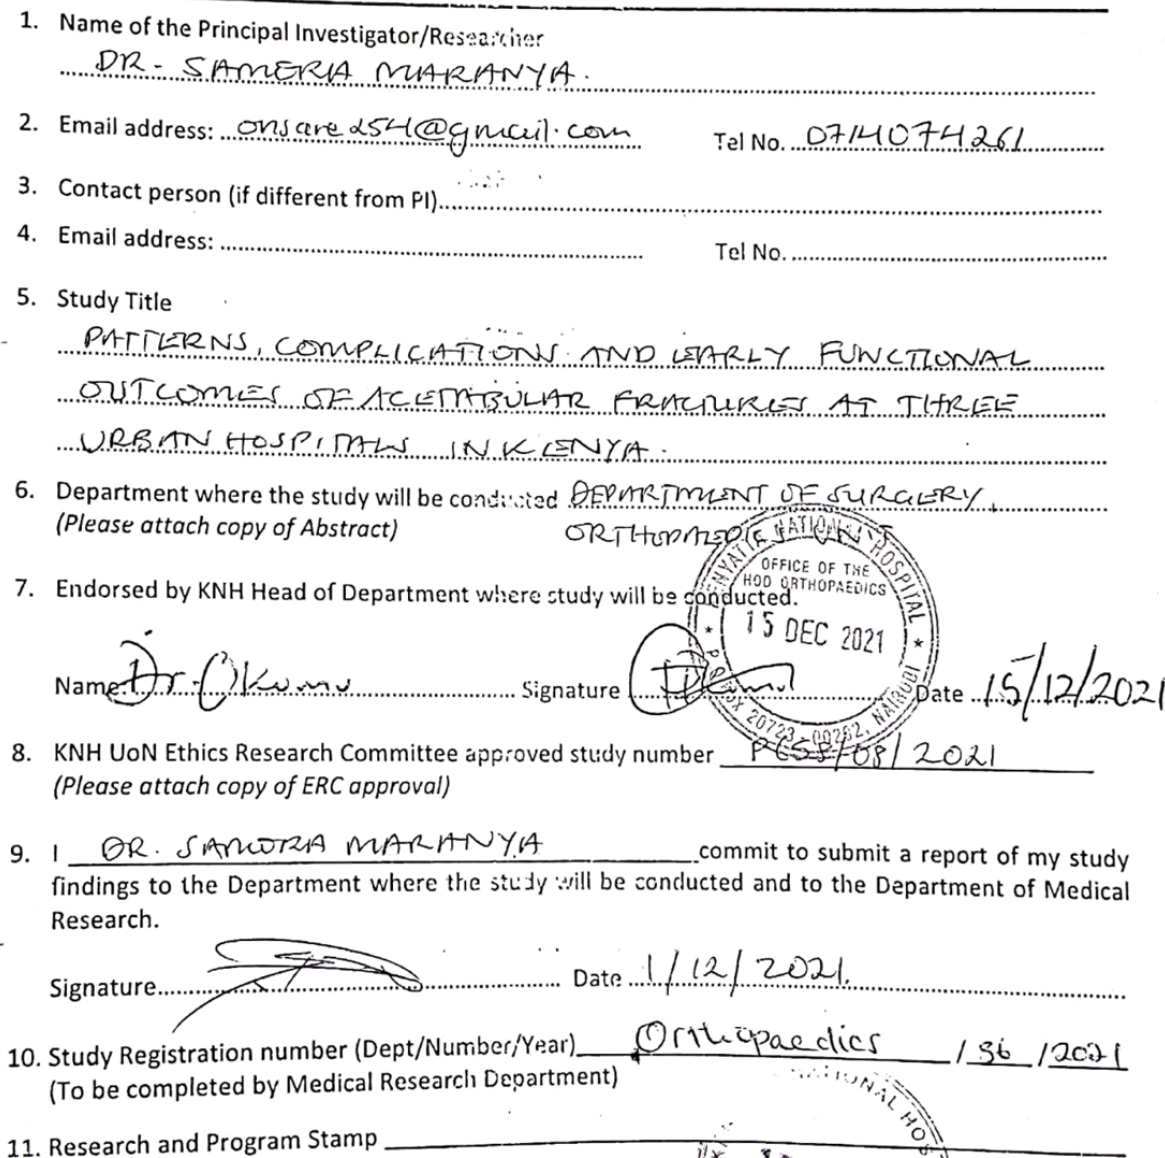 1. Name of the Principal Investigator/Researcher
DR - SAMORA MARANYA.
2. Email address: onsare254@gmail.com Tel No. 0714074261
3. Contact person (if different from PI)
4. Email address: Tel No.
5. Study Title
PATTERNS, COMPLICATIONS AND EARLY FUNCTIONAL
OUTCOMES OF ACETABULAR FRACTURES AT THREE
URBAN HOSPITALS IN KENYA.
6. Department where the study will be conducted DEPARTMENT OF SURGERY,
(Please attach copy of Abstract) ORTHOPAEDIC UNIT
KENYATTA NATIONAL HOSPITAL
OFFICE OF THE
HOD ORTHOPAEDICS
15 DEC 2021
P. O. BOX 20723 - 00202, NAIROBI
7. Endorsed by KNH Head of Department where study will be conducted.
Name: Dr. Okumu Signature Date 15/12/2021
8. KNH UoN Ethics Research Committee approved study number /08/2021
(Please attach copy of ERC approval)
9. I DR. SAMORA MARANYA commit to submit a report of my study
findings to the Department where the study will be conducted and to the Department of Medical
Research.
Signature Date 1/12/2021.
10. Study Registration number (Dept/Number/Year) Orthopaedics / 36 /2021
(To be completed by Medical Research Department)
NATIONAL HOS
11. Research and Program Stamp